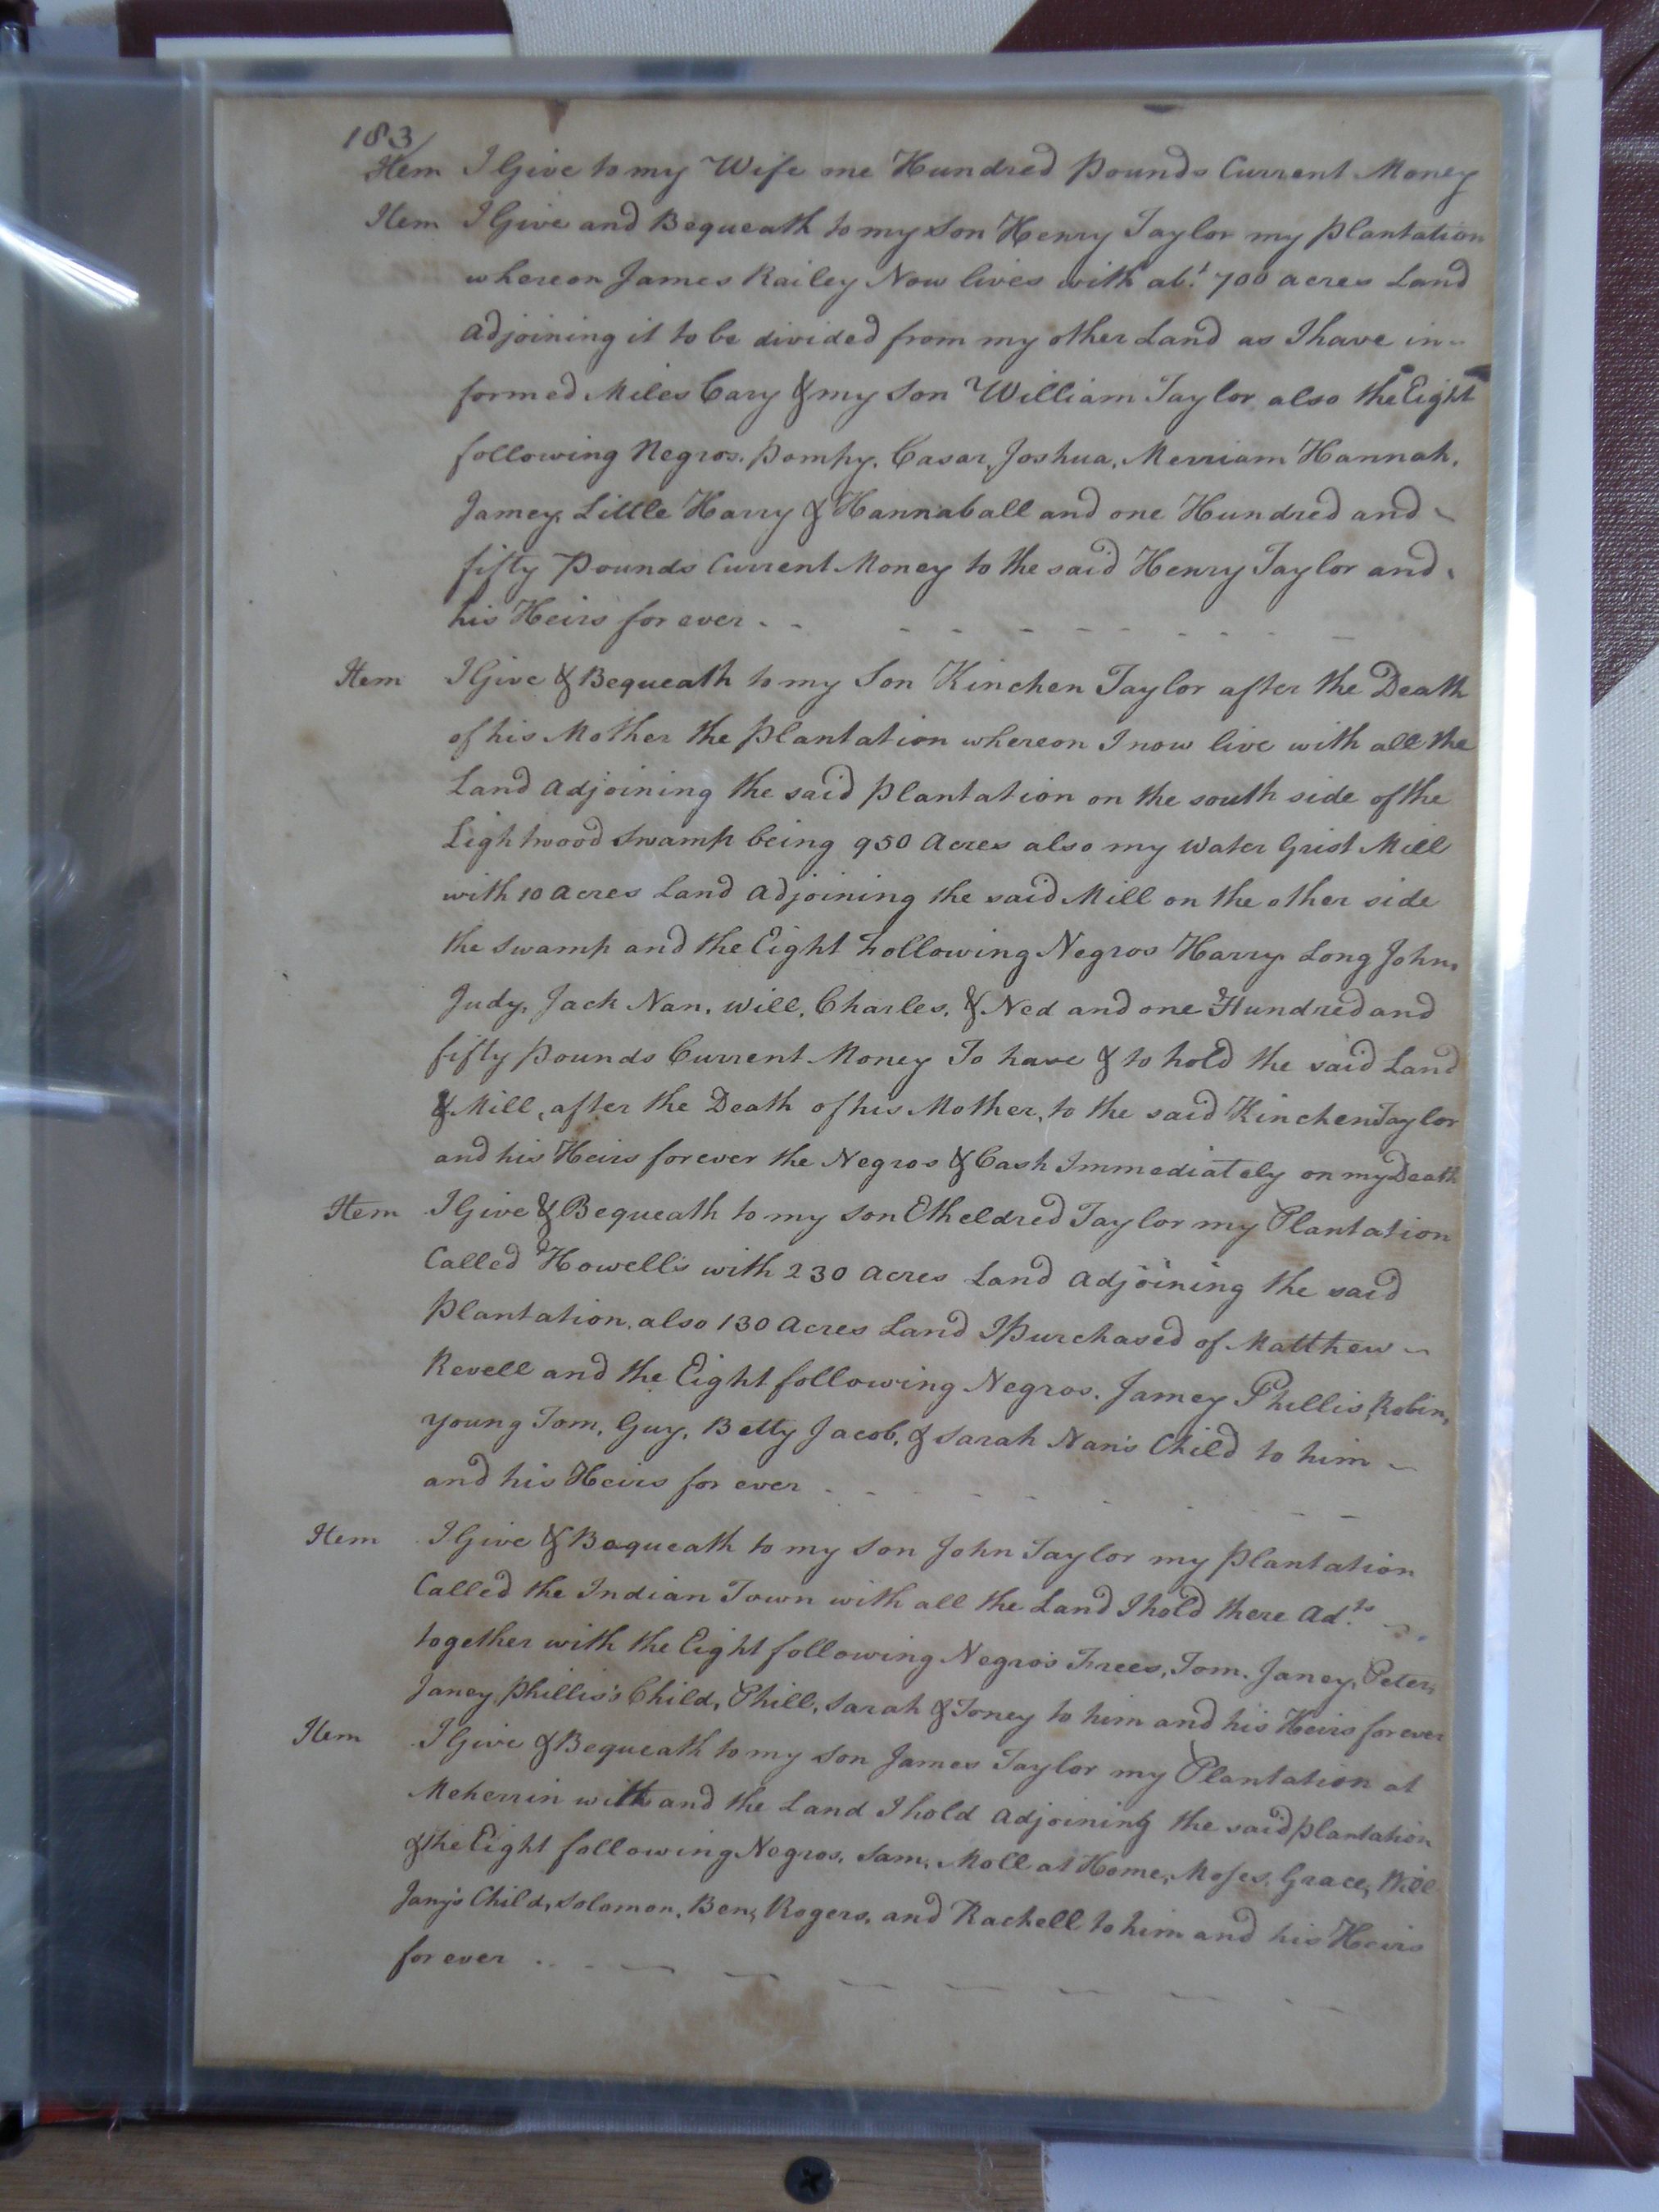 183
Item I Give to my Wife one Hundred Pounds Current Money
Item I Give and Bequeath to my Son Henry Taylor my Plantation
whereon James Railey Now lives with abt. 700 acres Land
adjoining it to be divided from my other Land as I have in-
formed Miles Cary & my Son William Taylor also the Eight
following Negros. Pompy. Casar, Joshua, Merriam Hannah,
Jamey, Little Harry & Hannaball and one Hundred and
fifty Pounds Current Money to the said Henry Taylor and
his Heirs for ever
Item I Give & Bequeath to my Son Kinchen Taylor after the Death
of his Mother the Plantation whereon I now live with all the
Land adjoining the said Plantation on the south side of the
Lightwood Swamp being 950 Acres also my Water Grist Mill
with 10 acres Land adjoining the said Mill on the other side
the Swamp and the Eight following Negros Harry. Long John,
Judy, Jack Nan, Will, Charles, & Ned and one Hundred and
fifty Pounds Current Money To have & to hold the said Land
& Mill, after the Death of his Mother, to the said Kinchen Taylor
and his Heirs forever the Negros & Cash Immediately on my Death
Item I Give & Bequeath to my Son Etheldred Taylor my Plantation
Called Howell's with 230 Acres Land adjoining the said
Plantation, also 130 Acres Land I Purchased of Matthew
Revell and the Eight following Negros. Jamey Phillis, Robin,
Young Tom, Guy, Betty Jacob, & Sarah Nan's Child to him
and his Heirs for ever
Item I Give & Bequeath to my Son John Taylor my Plantation
Called the Indian Town with all the Land I hold there
together with the Eight following Negros Frees, Tom. Janey, Peter,
Janey, Phillis's Child, Phill, Sarah & Toney to him and his Heirs forever
Item I Give & Bequeath to my Son James Taylor my Plantation at
Meherrin with and the Land I hold adjoining the said Plantation
& the Eight following Negros, Sam, Moll at Home, Moses, Grace, Will
Jany's Child, Solomon, Ben, Rogers, and Rachell to him and his Heirs
for ever